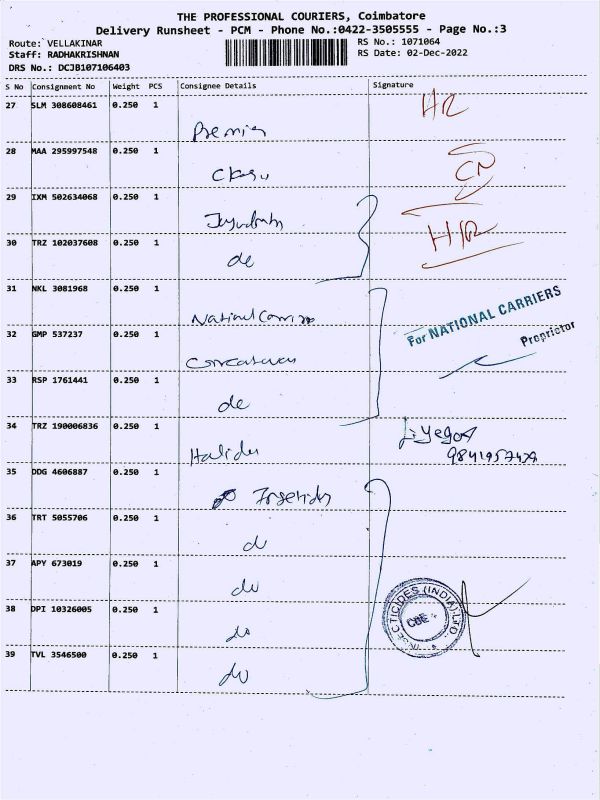 THE PROFESSIONAL COURIERS, Coimbatore
Delivery Runsheet - PCM - Phone No.:0422-3505555 - Page No.:3
Route: VELLAKINAR
RS No.: 1071064
Staff: RADHAKRISHNAN
RS Date: 02-Dec-2022
DRS No.: DCJB107106403
S No Consignment No Weight PCS Consignee Details Signature
27 SLM 308608461 0.250 1 HR
Premier
28 MAA 295997548 0.250 1
29 IXM 502634068 0.250 1
HR
30 TRZ 102037608 0.250 1
do
31 NKL 3081968 0.250 1
National Carriers
For NATIONAL CARRIERS
Proprietor
32 GMP 537237 0.250 1
33 RSP 1761441 0.250 1
do
34 TRZ 190006836 0.250 1
35 DDG 4606887 0.250 1
36 TRT 5055706 0.250 1
do
37 APY 673019 0.250 1
do
INSECTICIDES (INDIA) LTD.
CBE
38 DPI 10326005 0.250 1
do
39 TVL 3546500 0.250 1
do